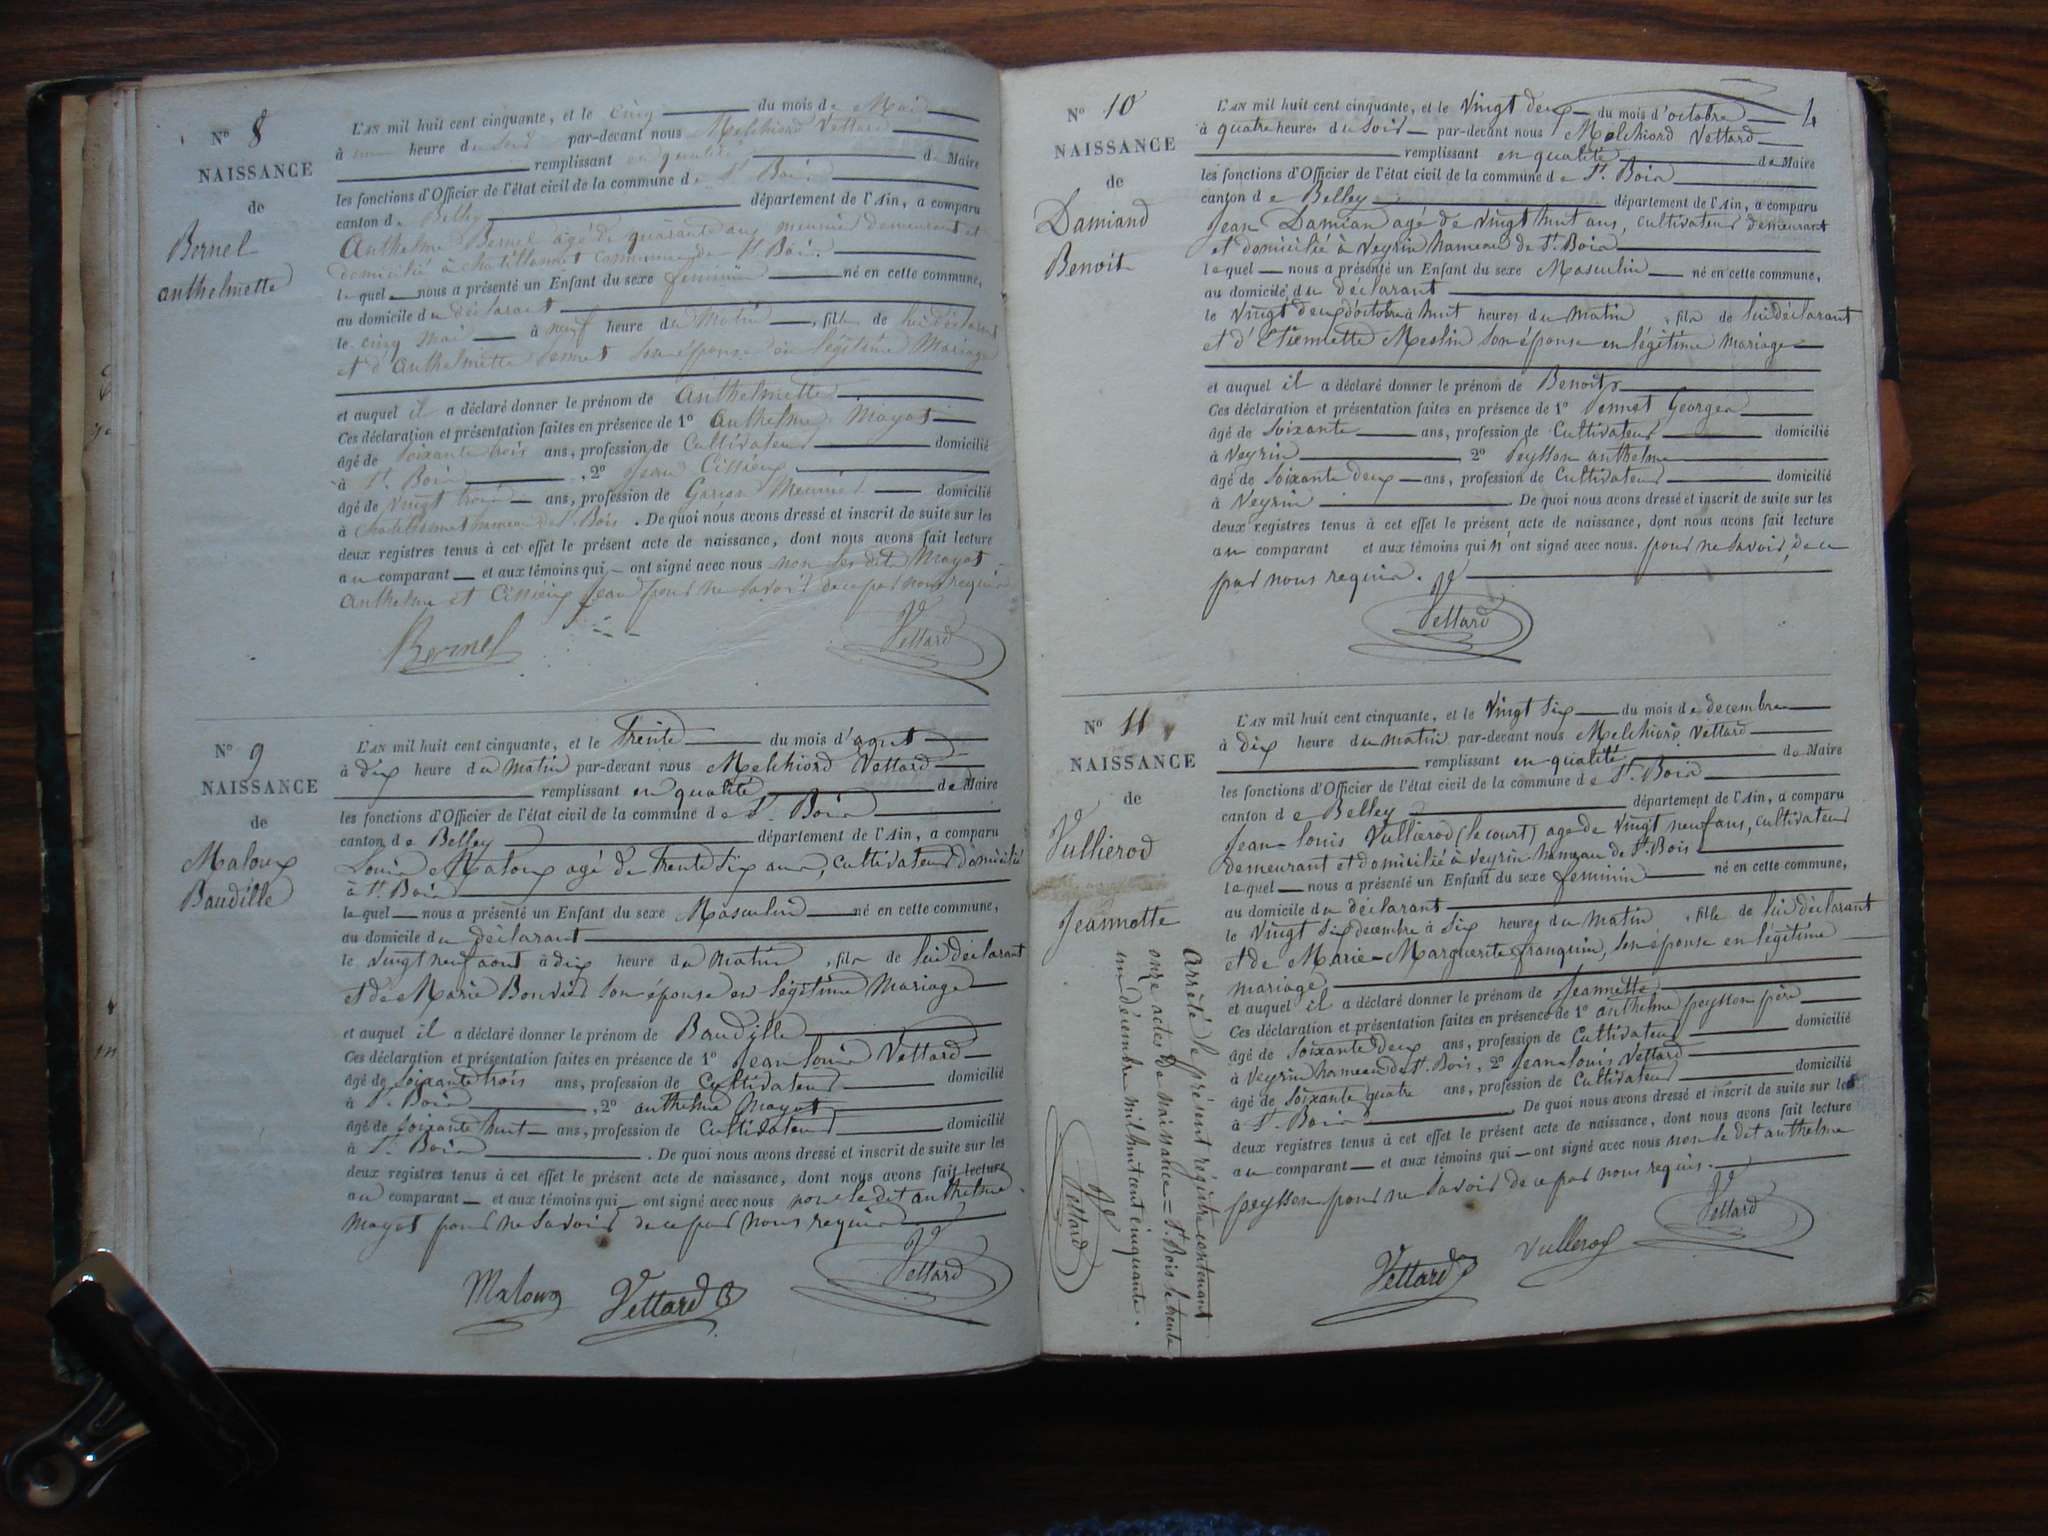 N° 8
NAISSANCE
de
Bernel
anthelmette
L'AN mil huit cent cinquante, et le cinq du mois de Mai
à une heure du soir par-devant nous Melchiord Vettard
remplissant en qualité de Maire
les fonctions d'Officier de l'état civil de la commune de St. Bois
canton de Belley département de l'Ain, a comparu
Anthelme Bernel agé de quarante ans meunier demeurant et
domicilié à chatillonnet commune de St. Bois
lequel nous a présenté un Enfant du sexe feminin né en cette commune,
au domicile du déclarant
le cinq Mai à neuf heure du Matin , fille de lui déclarant
et d'Anthelmette son épouse en légitime Mariage
et auquel il a déclaré donner le prénom de Anthelmette
Ces déclaration et présentation faites en présence de 1° Anthelme Mayot
âgé de soixante trois ans, profession de Cultivateur domicilié
à St. Bois , 2° Jean Cissieux
âgé de vingt trois ans, profession de Garçon Meunier domicilié
à chatillonnet hameau de St. Bois . De quoi nous avons dressé et inscrit de suite sur les
deux registres tenus à cet effet le présent acte de naissance, dont nous avons fait lecture
au comparant et aux témoins qui ont signé avec nous non les dits Mayot
Anthelme et Cissieux Jean pour ne savoir de ce par nous requis
Bernel Vettard
N° 9
NAISSANCE
de
Maloux
Baudille
L'AN mil huit cent cinquante, et le Trente du mois d'aout
à dix heure du matin par-devant nous Melchiord Vettard
remplissant en qualité de Maire
les fonctions d'Officier de l'état civil de la commune de St. Bois
canton de Belley département de l'Ain, a comparu
Louis Maloux agé de Trente six ans, cultivateur domicilié
à St. Bois
lequel nous a présenté un Enfant du sexe Masculin né en cette commune,
au domicile du déclarant
le vingt neuf aout à dix heure du matin , fils de lui déclarant
et de Marie Bonvier son épouse en légitime Mariage
et auquel il a déclaré donner le prénom de Baudille
Ces déclaration et présentation faites en présence de 1° Jean Louis Vettard
âgé de soixante trois ans, profession de Cultivateur domicilié
à St. Bois , 2° anthelme Mayot
âgé de soixante huit ans, profession de Cultivateur domicilié
à St. Bois . De quoi nous avons dressé et inscrit de suite sur les
deux registres tenus à cet effet le présent acte de naissance, dont nous avons fait lecture
au comparant et aux témoins qui ont signé avec nous non le dit anthelme
Mayot pour ne savoir de ce par nous requis
Maloux Vettard Vettard
4
N° 10
NAISSANCE
de
Damiand
Benoit
L'AN mil huit cent cinquante, et le vingt deux du mois d'octobre
à quatre heures du soir par-devant nous Melchiord Vettard
remplissant en qualité de Maire
les fonctions d'Officier de l'état civil de la commune de St. Bois
canton de Belley département de l'Ain, a comparu
Jean Damian agé de vingt huit ans, cultivateur demeurant
et domicilié à Veyrin hameau de St. Bois
lequel nous a présenté un Enfant du sexe Masculin né en cette commune,
au domicile du déclarant
le vingt deux d'octobre à huit heures du matin , fils de lui déclarant
et d'Etiennette Meslin son épouse en légitime mariage
et auquel il a déclaré donner le prénom de Benoit
Ces déclaration et présentation faites en présence de 1° Georges
âgé de soixante ans, profession de Cultivateur domicilié
à Veyrin 2° Peysson anthelme
âgé de soixante deux ans, profession de Cultivateur domicilié
à Veyrin . De quoi nous avons dressé et inscrit de suite sur les
deux registres tenus à cet effet le présent acte de naissance, dont nous avons fait lecture
au comparant et aux témoins qui n'ont signé avec nous. pour ne savoir, de ce
par nous requis.
Vettard
N° 11
NAISSANCE
de
Vullierod
Jeannette
L'AN mil huit cent cinquante, et le vingt six du mois de decembre
à dix heure du matin par-devant nous Melchior Vettard
remplissant en qualité de Maire
les fonctions d'Officier de l'état civil de la commune de St. Bois
canton de Belley département de l'Ain, a comparu
Jean-Louis Vullierod (le court) age de vingt neuf ans, cultivateur
demeurant et domicilié à Veyrin hameau de St. Bois
lequel nous a présenté un Enfant du sexe feminin né en cette commune,
au domicile du déclarant
le vingt six decembre à six heures du matin , fille de lui déclarant
et de Marie-Marguerite franquin, son épouse en légitime
mariage
et auquel il a déclaré donner le prénom de Jeannette
Ces déclaration et présentation faites en présence de 1° anthelme peysson père
âgé de soixante deux ans, profession de Cultivateur domicilié
à Veyrin hameau de St. Bois, 2° Jean-Louis Vettard
âgé de soixante quatre ans, profession de Cultivateur domicilié
à St. Bois . De quoi nous avons dressé et inscrit de suite sur les
deux registres tenus à cet effet le présent acte de naissance, dont nous avons fait lecture
au comparant et aux témoins qui ont signé avec nous non le dit anthelme
peysson pour ne savoir de ce par nous requis.
Vettard Vullerod Vettard
Arrêté le présent régistre contenant
onze actes de naissance = St. Bois le trente
un décembre mil huit cent cinquante.
Vettard